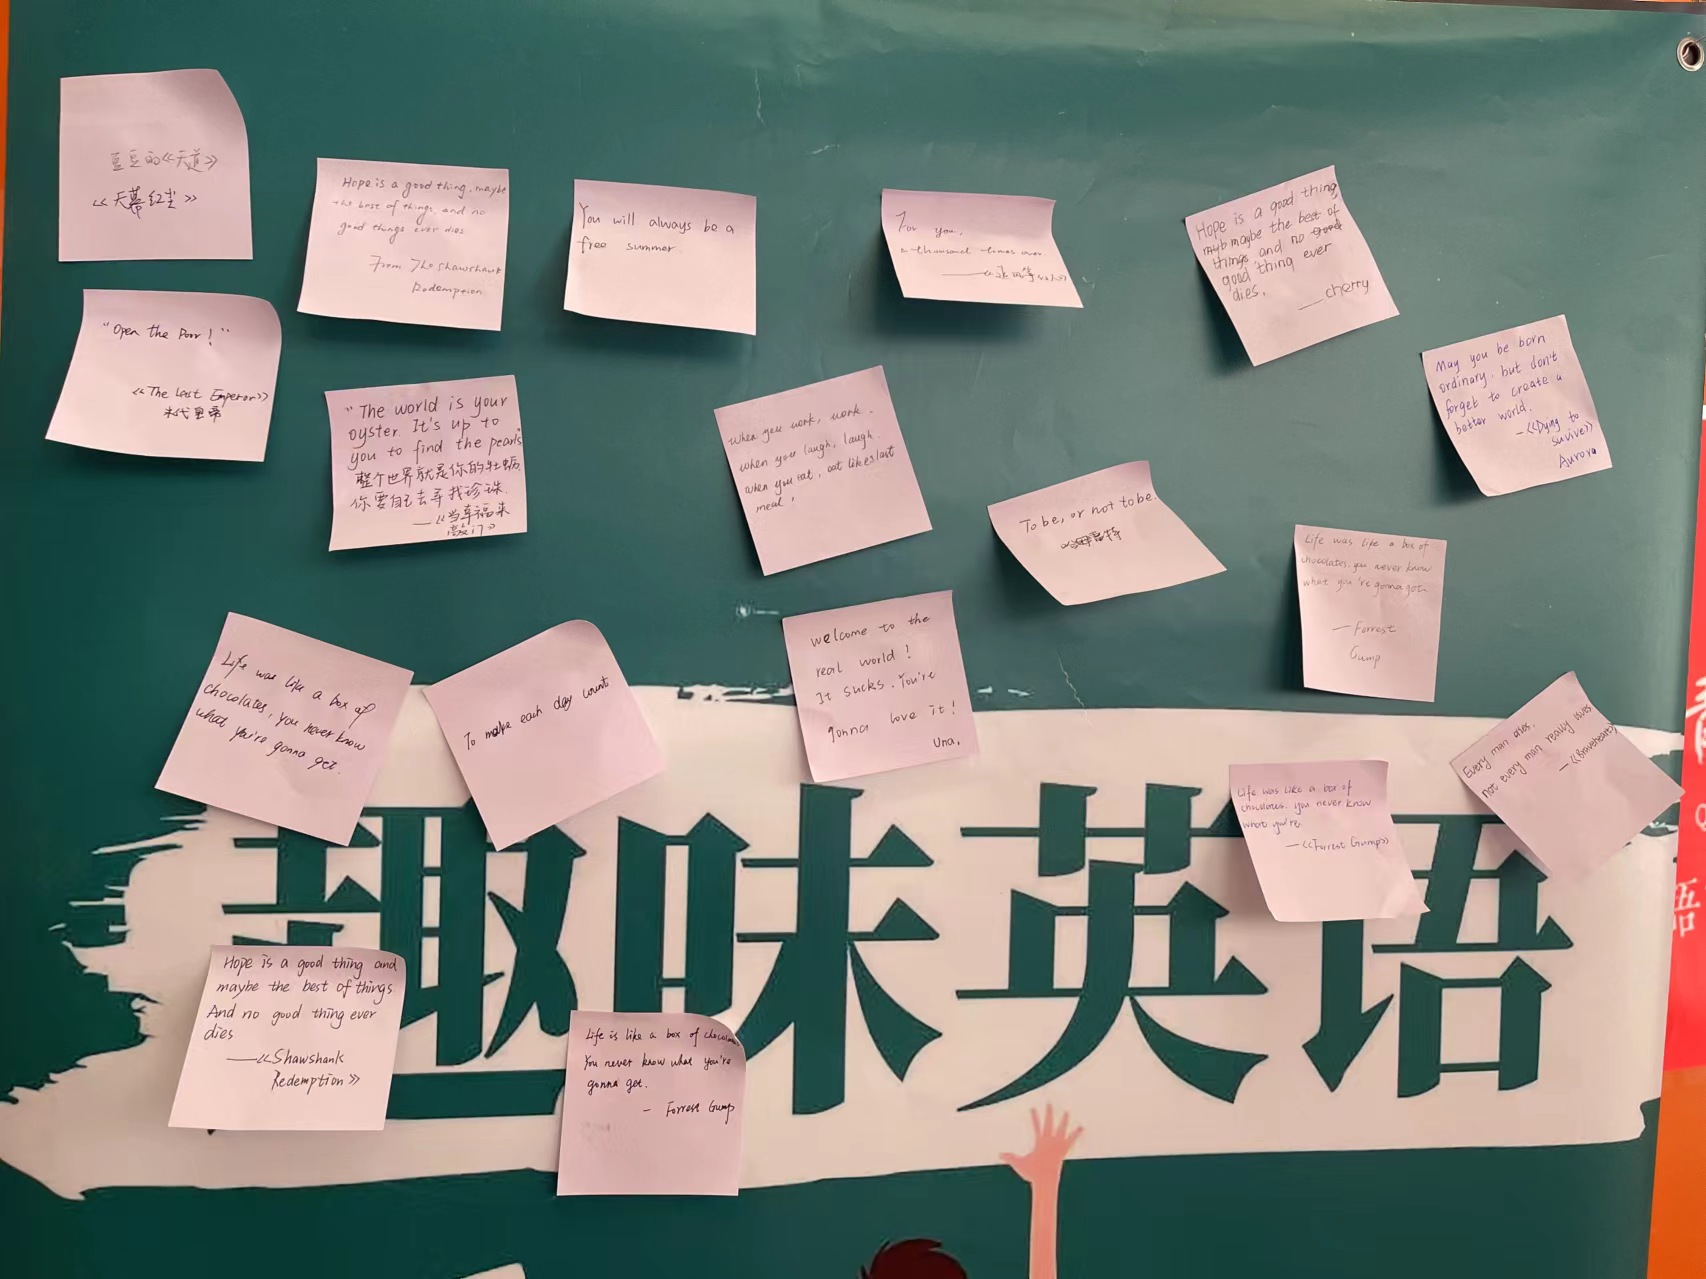 豆豆的《天道》
《天幕红尘》
Hope is a good thing, maybe
the best of things, and no
good things ever dies
From The Shawshank
Redemption
You will always be a
free summer.
For you,
a thousand times over
——《追风筝的人》
Hope is a good thing
mayb maybe the best of
things and no good
good thing ever
dies.
——cherry
"Open the Door!"
《The Last Emperor》
末代皇帝
"The world is your
oyster. It's up to
you to find the pearls
整个世界就是你的牡蛎
你要自己去寻找珍珠.
—《当幸福来
敲门》
When you work, work.
when you laugh, laugh.
when you eat, eat like last
meal.
May you be born
ordinary, but don't
forget to create a
better world.
—《Dying to
Suvive》
Aurora
To be, or not to be.
Life was like a box of
chocolates, you never know
what you're gonna get.
—Forrest
Gump
Life was like a box of
chocolates, you never know
what you're gonna get.
To make each day count
Welcome to the
real world!
It sucks. You're
gonna love it!
Una.
Every man dies.
not every man really lives
—《Braveheart》
Life was like a box of
chocolates. you never know
what you're
—《Forrest Gump》
趣味英语
语
Hope is a good thing and
maybe the best of things
And no good thing ever
dies
——《Shawshank
Redemption》
Life is like a box of chocolates
You never know what you're
gonna get.
- Forrest Gump